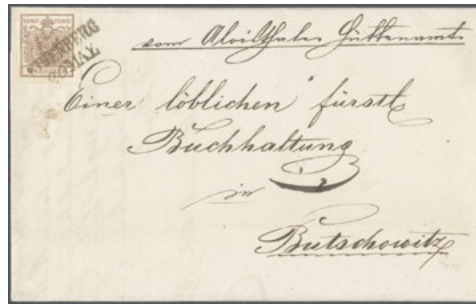 vom Aloisthaler Hüttenamte
Einer löblichen fürstl
Buchhaltung
in
Butschowitz